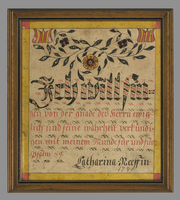 Ich will sin=
gen von der gnade des herrn ewig
lich und seine wahrheit verkündi
gen mit meinem Munde für und für
Psalm 89
Catharina